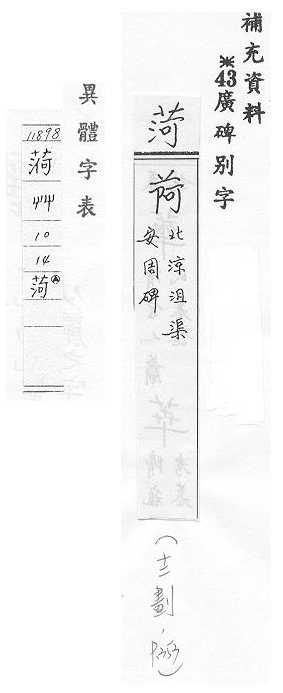 補充資料
※43廣碑別字
菏
北涼沮渠
安周碑
(十二劃,P353)
異體字表
11898
艸
10
14
菏Ⓐ